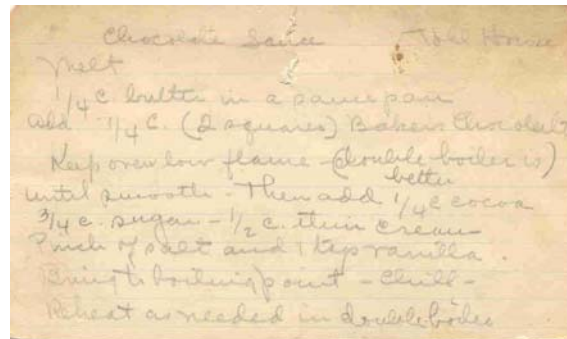 Chocolate Sauce Toll House
Melt
1/4 c. butter in a sauce pan
add 1/4 c. (2 squares) Bakers Chocolate
Keep over low flame - (double-boiler is)
better
until smooth - Then add 1/4 c cocoa
3/4 c. sugar - 1/2 c. thin cream
Pinch of salt and 1 tsp vanilla.
Bring to boiling point - Chill -
Reheat as needed in double boiler